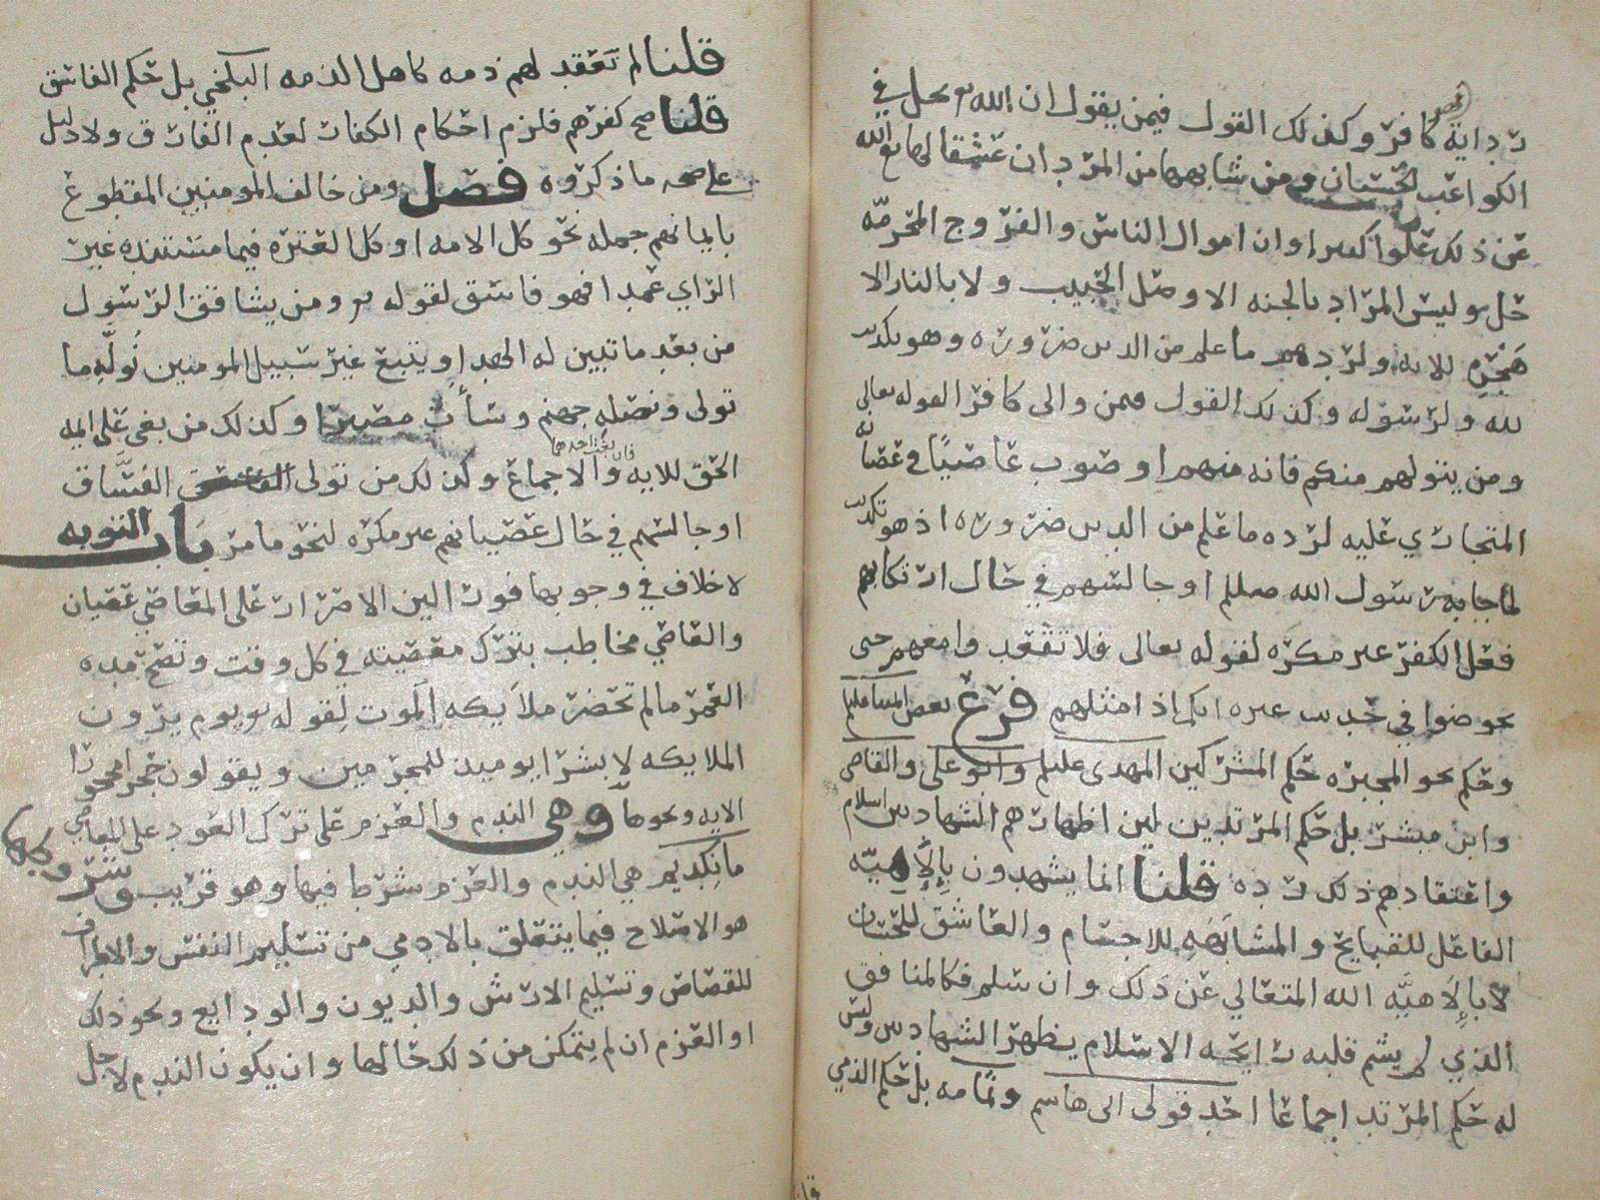 ردايه كافر وكذلك القول فيمن يقول ان الله تع يحل في
الكواعب الحسان ومن شابهها من المردان عشقا لها تع الله
عن ذلك علوا كبيرا وان اموال الناس والفروج المحرمه
حلال وليس المراد بالجنه الا وصل الحبيب ولا بالنار الا
هجره للايه ولردهم ما علم من الدين ضروره وهو تكذيب
لله ولرسوله وكذلك القول فيمن والى كافرا لقوله تعالى
ومن يتولهم منكم فانه منهم او صوب عاصيا في عصيانه
المتجاري عليه لرده ما علم من الدين ضروره اذ هو تكذيب
لما جا به رسول الله صللم او جالسهم في حال ارتكابهم
فعل الكفر غير مكره لقوله تعالى فلا تقعدوا معهم حتى
يخوضوا في حديث غيره انكم اذا مثلهم فرع بعض ايمتنا عليلم
وحكم نحو المجبره حكم المشركين المهدي عليلم وابو علي والقاضي
وابن مبشر بل حكم المرتدين لين اظهارهم الشهادتين اسلام
واعتقادهم ذلك رده قلنا انما يشهدون بإلاهيّه
الفاعل للقبايح والمشابهه للاجسام والعاشق للحسان
لا بإلاهيّه الله المتعالي عن ذلك وان سلم فكالمنافق
الذي لم يشم قلبه رايحه الاسلام يظهر الشهادتين وليس
له حكم المرتد اجماعا احد قولي ابي هاشم وثمامه بل حكم الذمي
قلنا لم تعقد لهم ذمه كاهل الذمه البلخي بل حكم الفاسق
قلنا صح كفرهم فلزم احكام الكفار لعدم الفارق ولا دليل
على صحه ما ذكروه فصل ومن خالف المومنين المقطوع
بايمانهم جمله نحو كل الامه او كل العتره فيما مستنده غير
الراي عمدا فهو فاسق لقوله تع ومن يشاقق الرسول
من بعد ما تبين له الهدا ويتبع غير سبيل المومنين نُولّهِ ما
تولى ونصله جهنم وسأت مصيرا وكذلك من بغى على ايمه
الحق للايه والاجماع وكذلك من تولى الفسَّاق
فان بغت احداهما
او جالسهم في حال عصيانهم غير مكره لنحو ما مر باب التوبه
لا خلاف في وجوبها فورا لين الاصرار على المعاصي عصيان
والعاصي مخاطب بترك معصيته في كل وقت وتصح مده
العمر ما لم تحضر ملايكه الموت لقوله تع يوم يرون
الملايكه لا بشرا يوميذ للمجرمين ويقولون حجرا محجورا
الايه ونحوها وهي الندم والعزم على ترك العود على المعاصي
مانكديم هي الندم والعزم شرط فيها وهو قريب وشروطها
هو الاصلاح فيما يتعلق بالادمي من تسليم النفس والاطراف
للقصاص وتسليم الارش والديون والودايع ونحو ذلك
او العزم ان لم يتمكن من ذلك حالها وان يكون الندم لاجل